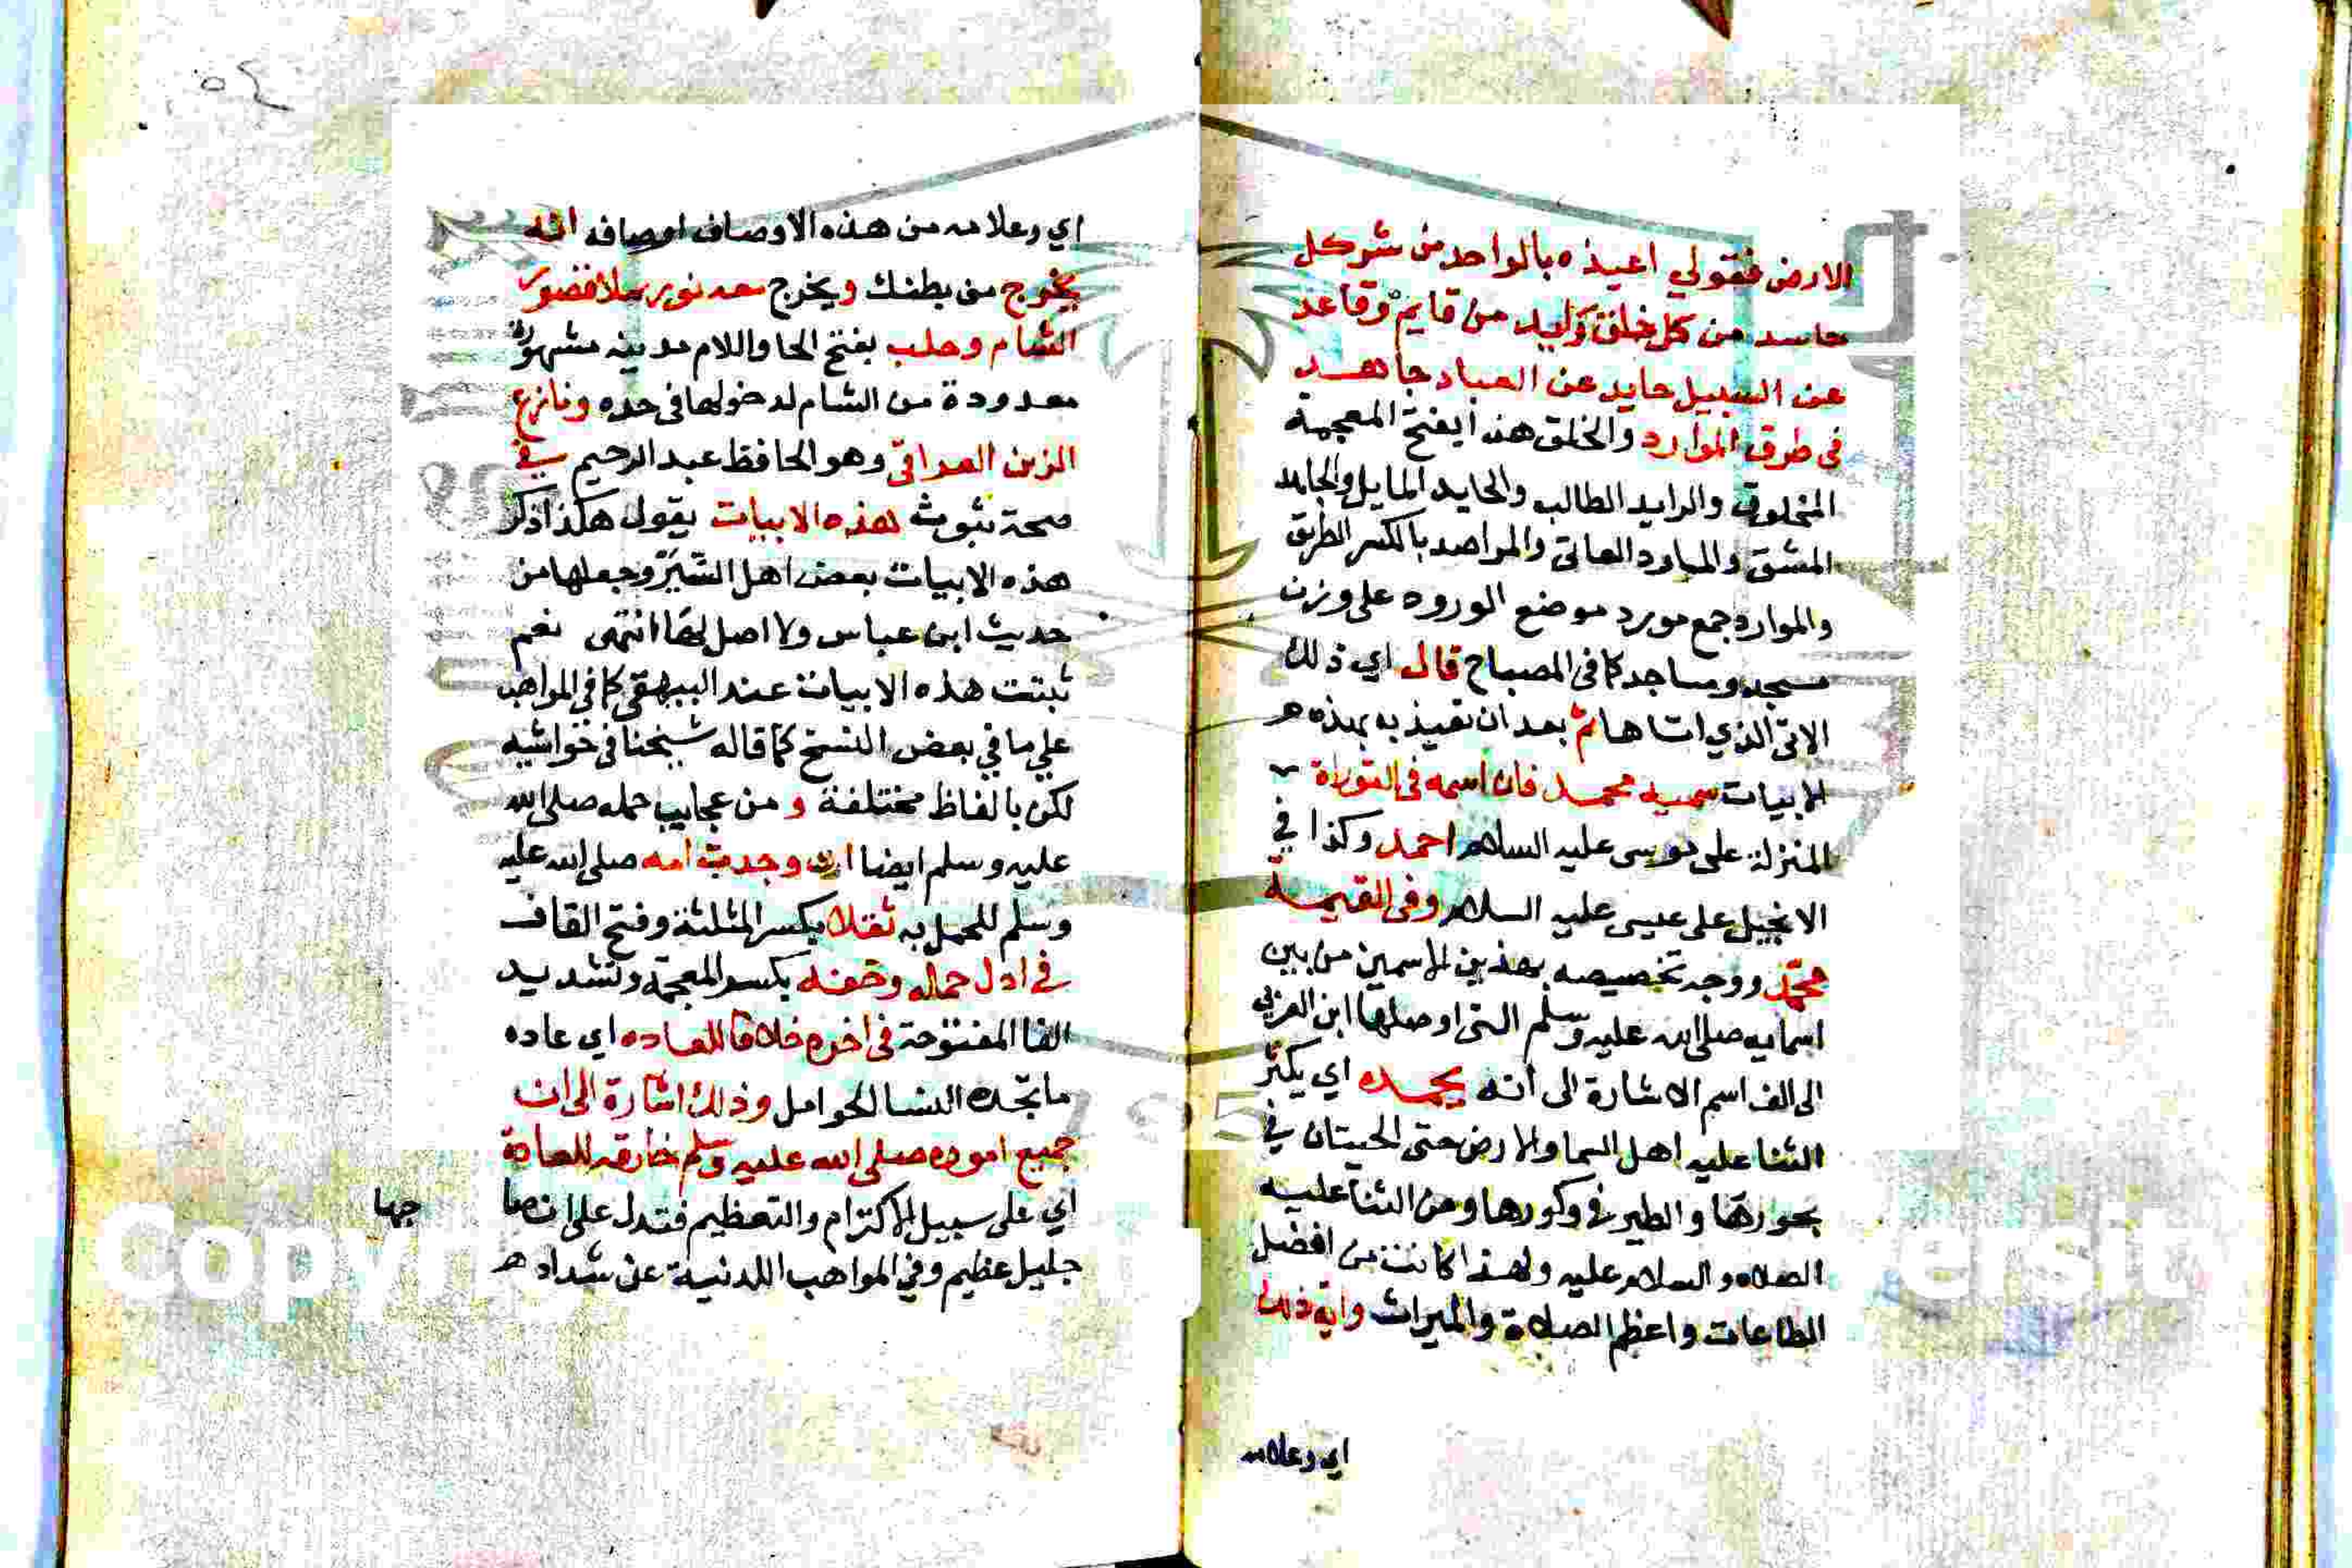 الارض فقولي اعيذه بالواحد من شر كل
حاسد من كل خلق رايد من قايم وقاعد
عن السبيل حايد عن العباد جاهد
في طرق الموارد والخلق هنا بفتح المعجمة
المخلوق والرايد الطالب والحايد المايل والجاهد
المشق والمراود العاتي والمراصد بالكسر الطريق
والموارد جمع مورد موضع الورود على وزن
مسجد ومساجد كما في المصباح قال اي ذلك
الاتي الذي اتاها ثم بعد ان تعيذيه بهذه
الابيات سميه محمد فان اسمه في التوراة
المنزلة على موسى عليه السلام احمد وكذا في
الانجيل على عيسى عليه السلام وفي القيمة
محمد ووجه تخصيصه بهذين الاسمين من بين
اسمايه صلى الله عليه وسلم التي اوصلها ابن العربي
الى الف اسم الاشارة الى انه يحمده اي يكثر
الثنا عليه اهل السما والارض حتى الحيتان في
بحورها والطير في وكورها ومن الثنا عليه
الصلاه والسلام عليه ولهذا كانت من افضل
الطاعات واعظم الصلاة والميراث واية ذلك
اي وعلامه
٥٤
اي وعلامه من هذه الاوصاف اوصافه انه
يخرج من بطنك ويخرج معه نور يملا قصور
الشام وحلب بفتح الحا واللام مدينه مشهورة
معدودة من الشام لدخولها في حده ونازع
الزين العراقي وهو الحافظ عبد الرحيم في
صحة ثبوت هذه الابيات بقول هكذا ذكر
هذه الابيات بعض اهل السير وجعلها من
حديث ابن عباس ولا اصل لها انتهى نعم
ثبتت هذه الابيات عند البيهقي كما في المواهب
علي ما في بعض النسخ كما قاله شيخنا في حواشيه
لكن بالفاظ مختلفة و من عجايب حمله صلى الله
عليه وسلم ايضا ان وجدت امه صلى الله عليه
وسلم للحمل به ثقلا بكسر المثلثة وفتح القاف
في اول حمله وخفه بكسر المعجمة وتشديد
الفا المفتوحة في اخره خلافا للعاده اي عاده
ما تجده النسا الحوامل وذلك اشارة الى ان
جميع اموره صلى الله عليه وسلم خارقه للعادة
اي على سبيل الاكترام والتعظيم فتدل على ان صا
جها
جليل عظيم وفي المواهب اللدنية عن شداد